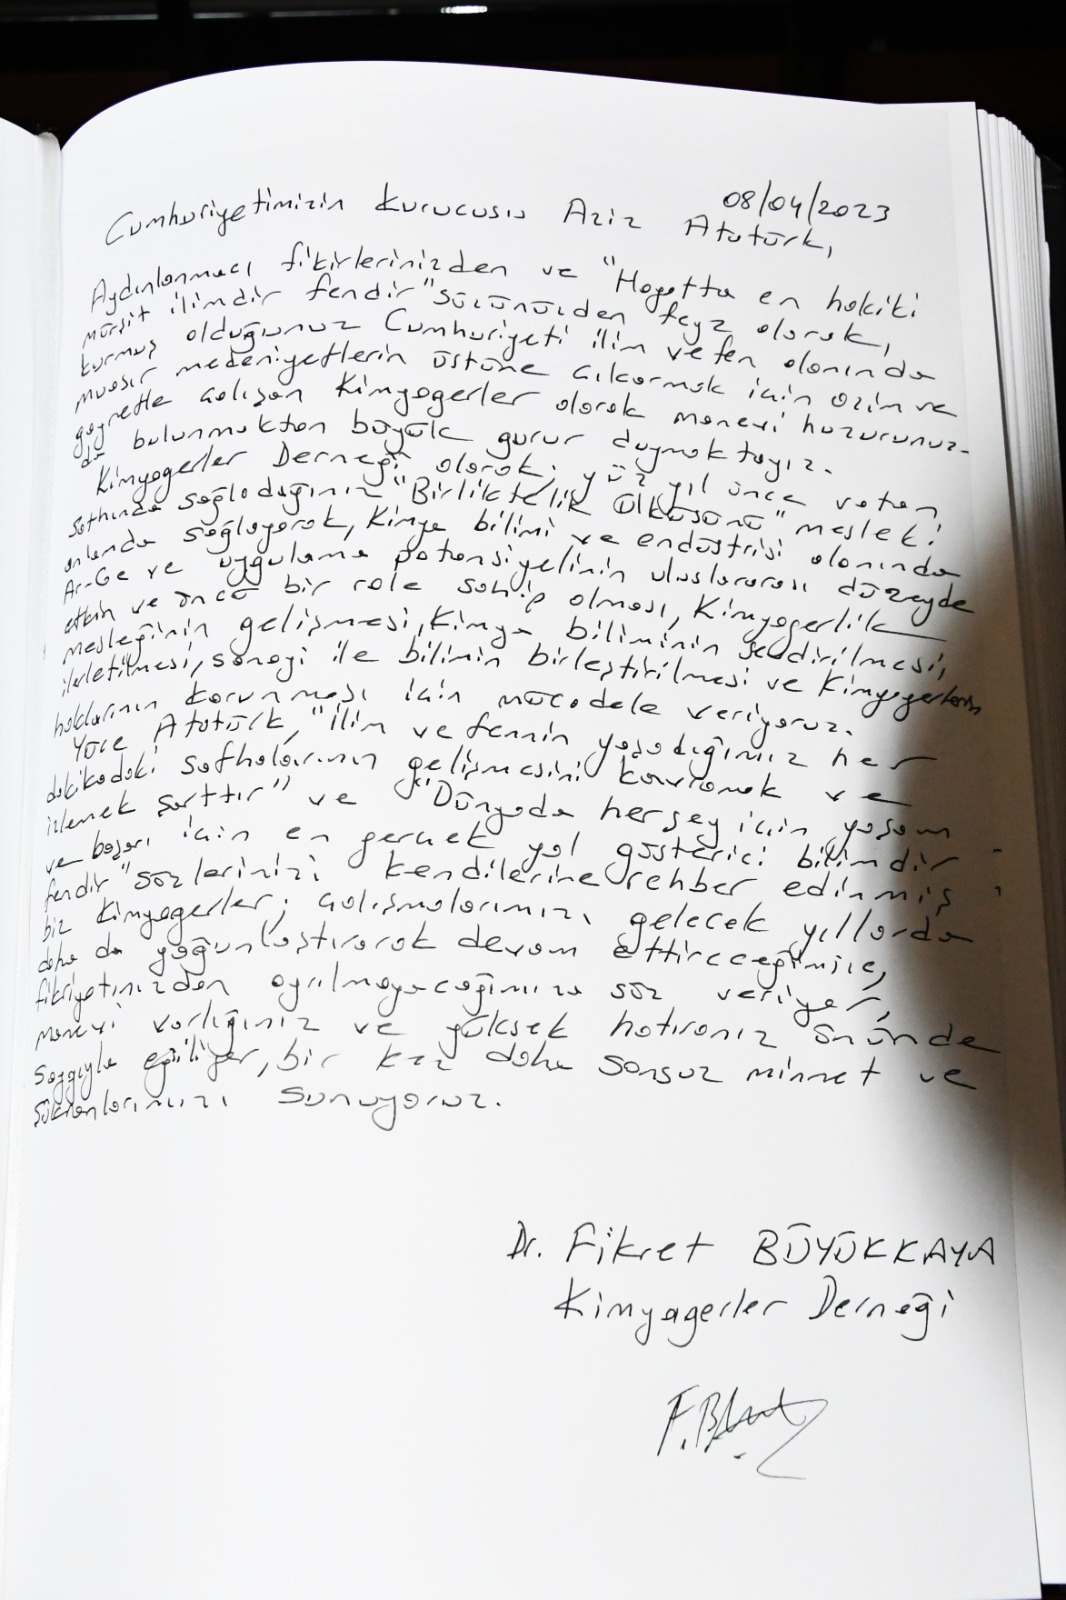 08/04/2023
Cumhuriyetimizin kurucusu Aziz Atatürk,
Aydınlanmacı fikirlerinizden ve "Hayatta en hakiki
mürşit ilimdir fendir" sözünüzden feyz alarak,
kurmuş olduğunuz Cumhuriyeti ilim ve fen alanında
muasır medeniyetlerin üstüne çıkarmak için azim ve
gayretle çalışan Kimyagerler olarak manevi huzurunuz-
da bulunmaktan büyük gurur duymaktayız.
Kimyagerler Derneği olarak; yüz yıl önce vatan
sathında sağladağınız "Birliktelik Ülküsünü" mesleki
anlamda sağlayarak, Kimya bilimi ve endüstrisi alanında
Ar-Ge ve uygulama potansiyelinin uluslararası düzeyde
etkin ve öncü bir role sahip olması, Kimyagerlik
mesleğinin gelişmesi, Kimya biliminin sevdirilmesi,
ilerletilmesi, sanayi ile bilimin birleştirilmesi ve Kimyagerlerin
haklarının korunması için mücadele veriyoruz.
Yüce Atatürk, "İlim ve fennin yaşadığımız her
dakikadaki safhalarının gelişmesini kavramak ve
izlemek şarttır" ve "Dünyada herşey için yaşam
ve başarı için en gerçek yol gösterici bilimdir
fendir" sözlerinizi kendilerine rehber edinmiş
biz Kimyagerler; çalışmalarımızı gelecek yıllarda
daha da yoğunlaştırarak devam ettireceğimize,
fikriyatınızdan ayrılmayacağımıza söz veriyor,
manevi varlığınız ve yüksek hatıranız önünde
saygıyla eğiliyor, bir kez daha sonsuz minnet ve
şükranlarımızı sunuyoruz.
Dr. Fikret BÜYÜKKAYA
Kimyagerler Derneği